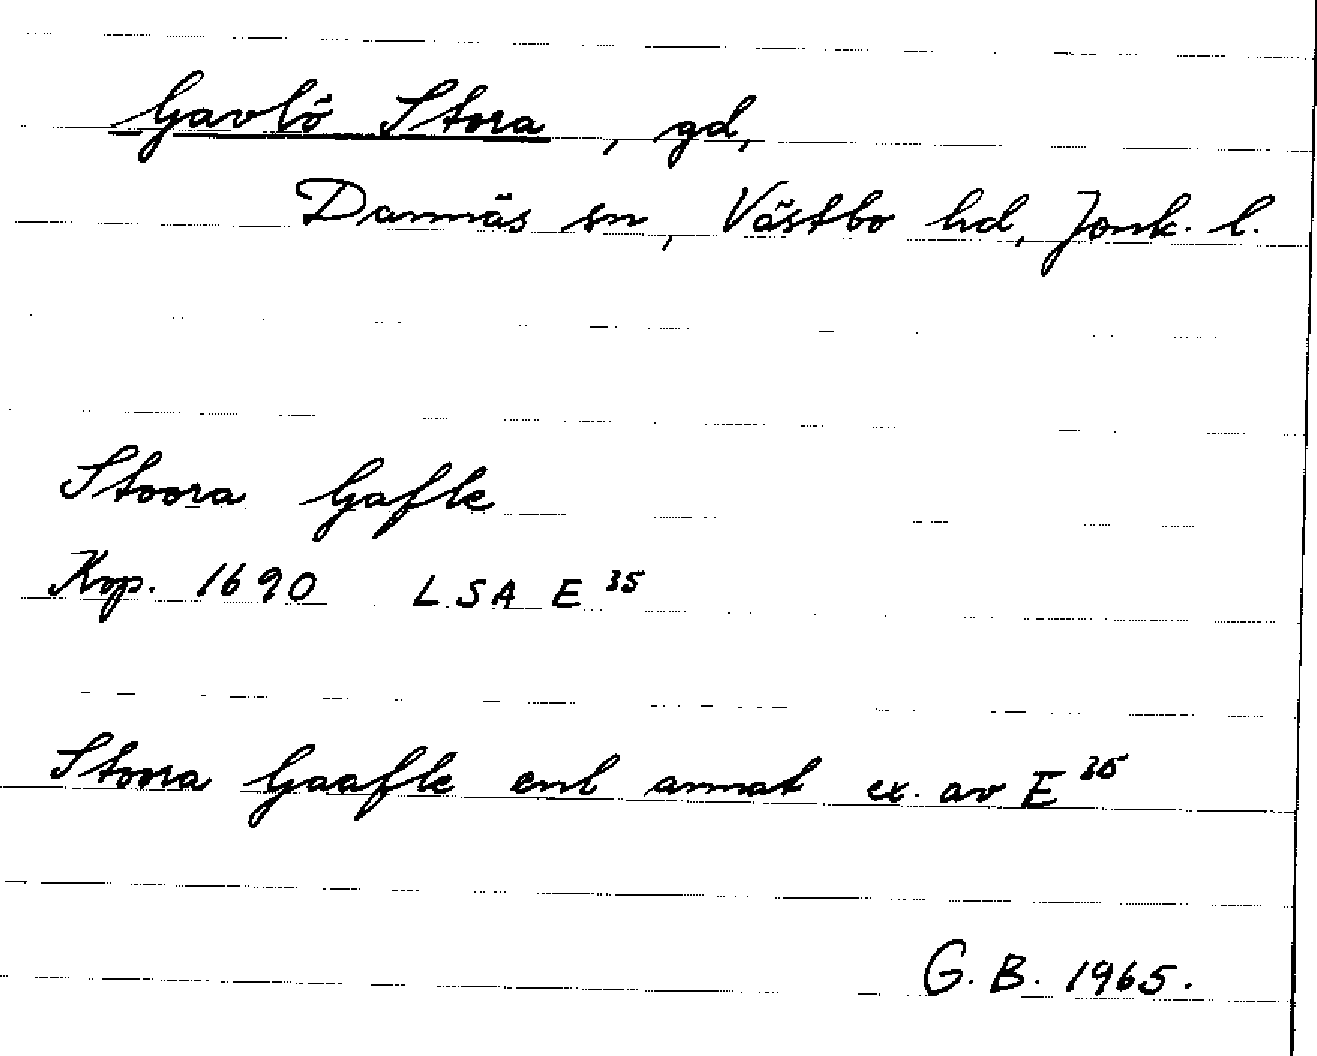 Gavlö Stora, gd,
Dannäs sn, Västbo hd, Jönk. l.
Stoora Gafle
Kop. 1690 LSA E 35
Stoora Gaafle enl annat ex. av E 35
G. B. 1965.